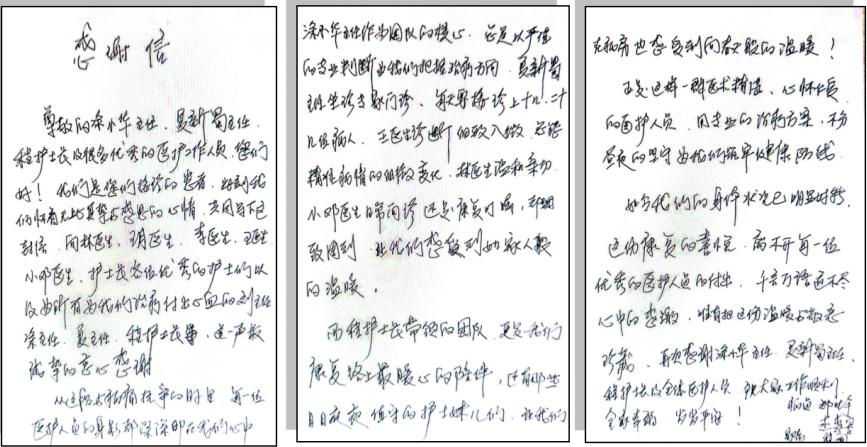 感谢信
尊敬的涂小华主任、夏新蜀主任、
程护士长及很多优秀的医护工作人员,您们
好!我们是您们接诊的患者,此刻我
们怀着无比真挚与感恩的心情,共同写下这
封信,向林医生、胡医生、李医生、王医生
小邓医生、护士长各位优秀的护士们以
及为所有为我们治病付出心血的刘主任
涂主任、夏主任、程护士长等,道一声最
诚挚的衷心感谢
从这段与病痛抗争的时日,每一位
医护人员的身影都深深印在我们心中
涂小华主任作为团队的核心,总是以严谨
的专业判断为我们把握治病方向,夏新蜀
主任坐诊专家门诊,每天要接诊上十几、二十
几位病人,王医生诊断细致入微,总能
精准病情的细微变化,林医生温和亲切
小邓医生的常问诊还是康复叮嘱,都细
致周到,让我们感受到如家人般
的温暖。
而程护士长带领的团队,更是我们
康复路上最暖心的陪伴,还有那些
日日夜夜值守的护士妹儿们,让我们
在病房也感受到同春天般的温暖!
正是这样一群医术精湛、心怀仁爱
的医护人员,用专业的治病方案,不分
昼夜的坚守为我们筑牢健康防线。
如今我们的身体状况已明显好转,
这份康复的喜悦,离不开每一位
优秀的医护人员的付出,千言万语道不尽
心中的感激,唯有把这份温暖与敬意
珍藏,再次感谢涂小华主任、夏新蜀主任、
程护士长及全体医护人员,祝大家工作顺利
全家幸福,岁岁平安!